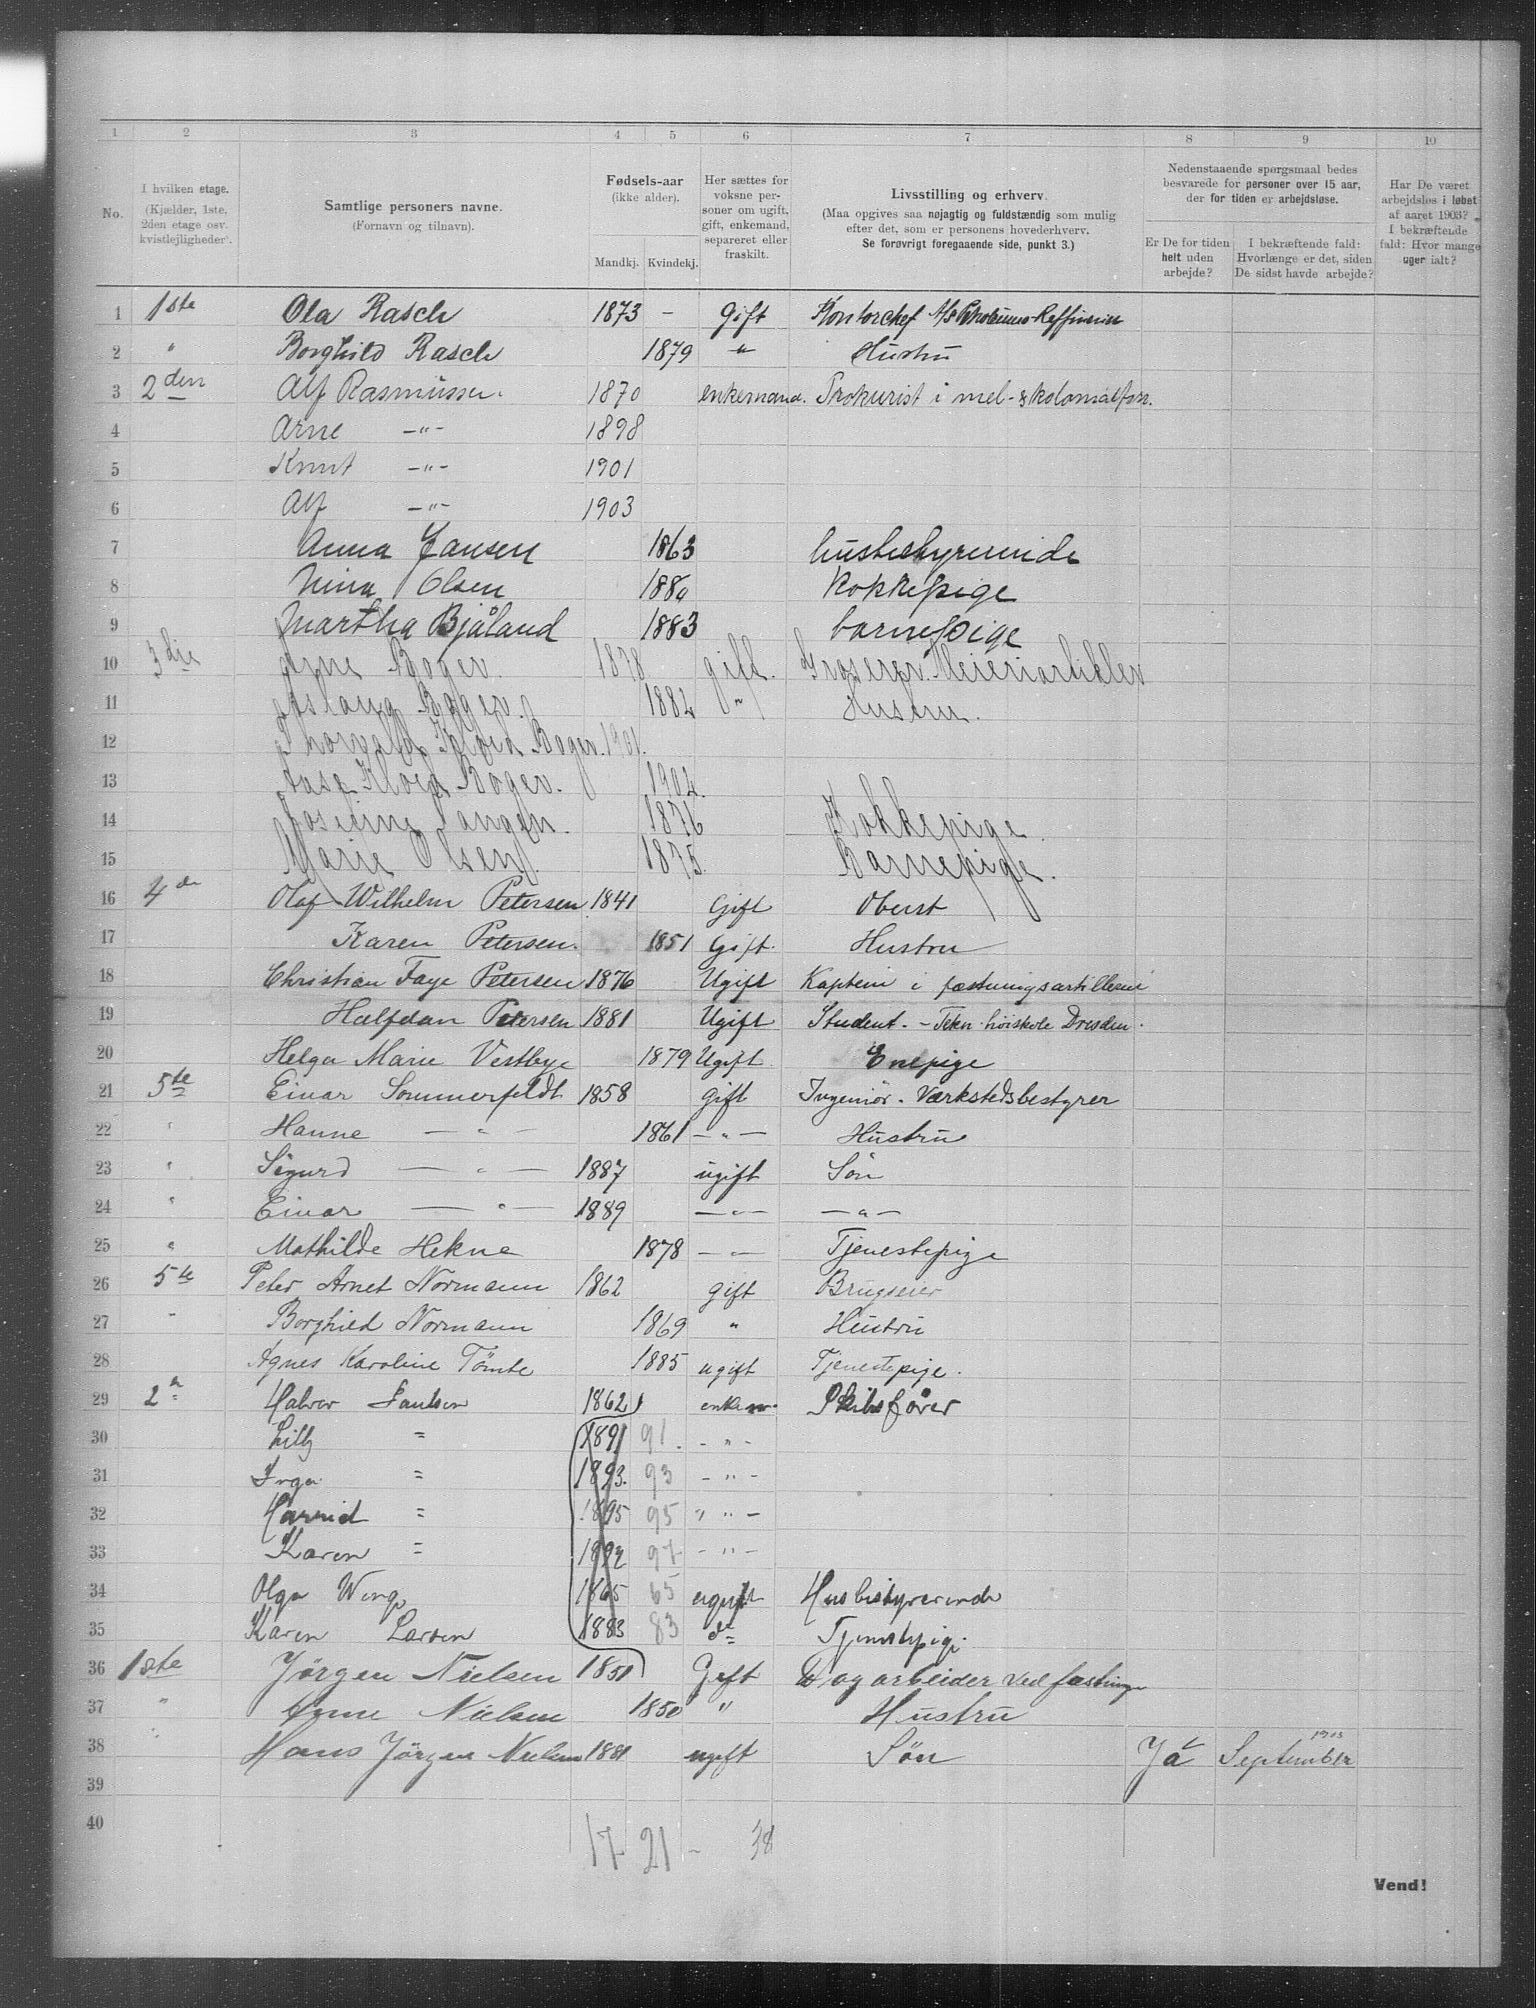 1 2 3 4 5 6 7 8 9 10
No.
I hvilken etage.
(Kjælder, 1ste, 2den etage osv. kvistlejligheder).
Samtlige personers navne.
(Fornavn og tilnavn).
Fødsels-aar
(ikke alder).
Mandkj. Kvindekj.
Her sættes for voksne personer om ugift, gift, enkemand, separeret eller fraskilt.
Livsstilling og erhverv.
(Maa opgives saa nøjagtig og fuldstændig som mulig efter det, som er personens hovederhverv.
Se forøvrigt foregaaende side, punkt 3.)
Nedenstaaende spørgsmaal bedes besvarede for personer over 15 aar, der for tiden er arbejdsløse.
Er De for tiden helt uden arbejde?
I bekræftende fald: Hvorlænge er det, siden De sidst havde arbejde?
Har De været arbejdsløs i løbet af aaret 1903?
I bekræftende fald: Hvor mange uger ialt?
1 1ste Ola Rasch 1873 - Gift Kontorchef A/S
2 " Borghild Rasch 1879 " Hustru
3 2den Alf Rasmussen. 1870 enkemand. Prokurist i mel- & kolonialforr.
4 Arne -"- 1898
5 Knut -"- 1901
6 Alf -"- 1903
7 Anna Jansen 1863 husbestyrerinde
8 Nina Olsen 1880 Kokkepige
9 Martha Bjåland 1883 barnepige
10 3die Arne Boger. 1878 gift. Grosserer. Meieriartikler
11 Aslaug Boger. 1882 " Hustru.
12 Thorvald Boger. 1901.
13 Aase Boger. 1902.
14 Josefine Langen. 1876 Kokkepige.
15 Marie Olsen 1875. Barnepige.
16 4de Olaf Wilhelm Petersen 1841 Gift Oberst
17 Karen Petersen. 1851 Gift. Hustru
18 Christian Faye Petersen 1876 Ugift Kaptein i fæstningsartilleriet
19 Halfdan Petersen 1881 Ugift Student. - Tekn. høiskole Dresden.
20 Helga Marie Vestbye 1879 Ugift Enepige
21 5te Einar Sommerfeldt 1858 gift Ingeniør - Værkstedsbestyrer
22 " Hanne - " - 1861 - " - Hustru
23 " Sigurd - " - 1887 ugift Søn
24 " Einar - " - 1889 - " - - " -
25 " Mathilde Hekne 1878 - " - Tjenestepige
26 5te Peter Arnet Normann 1862 gift Brugseier
27 " Borghild Normann 1869 " Hustru
28 Agnes Karoline Tömte 1885 ugift Tjenestepige.
29 2 Halvor Paulsen 1862 enkem. Skibsfører
30 Lilly = 1891 91. - " -
31 Inga = 1893. 93 - " -
32 = 1895 95 " " -
33 Karen = 1897 97 - " -
34 Olga 1865 65 ugift Husbestyrerinde
35 Karen Larsen 1883 83 do Tjenestepige.
36 1ste Jörgen Nielsen 1851 Gift Dagarbeider ved fæstninge
37 " Anne Nielsen 1850 " Hustru
38 " Hans Jörgen Nielsen 1881 ugift Søn Ja September 1903
39
40
17 - 21 - 38
Vend!